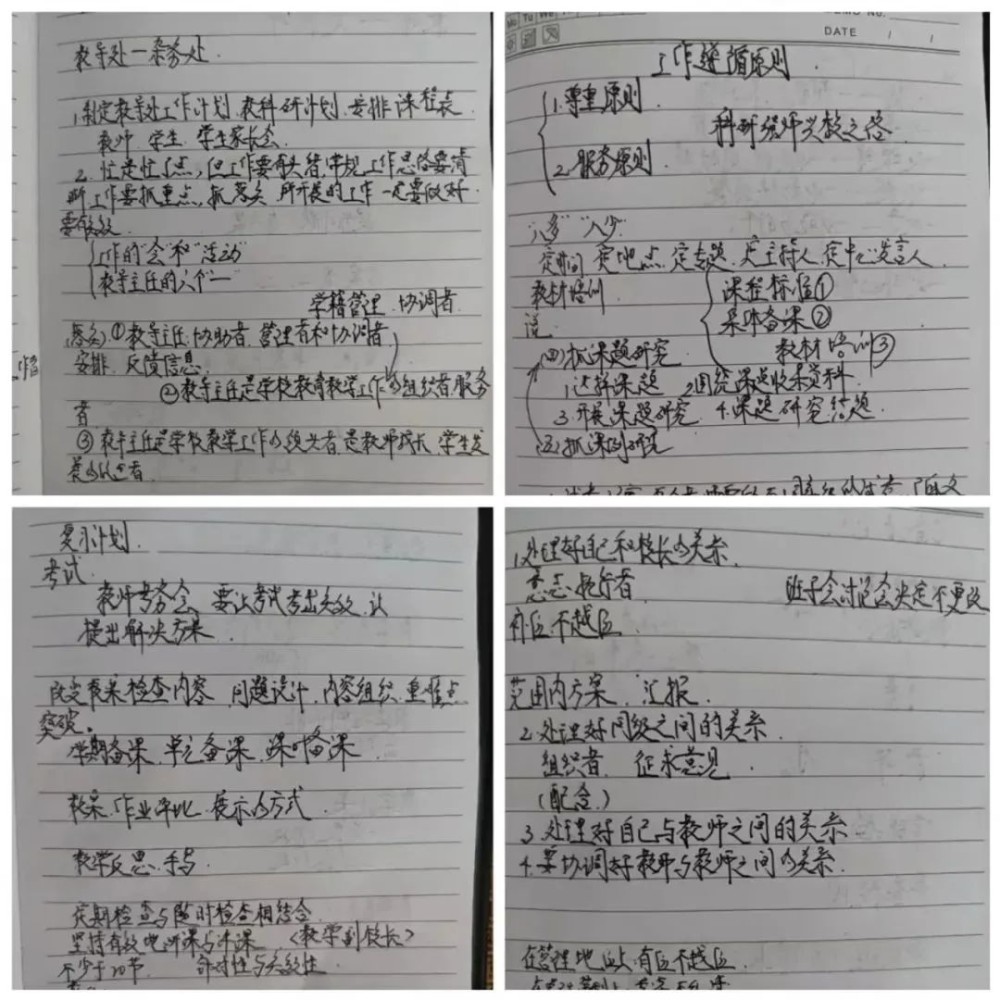 教导处一杂务处.
1.制定教导处工作计划.教科研计划.安排课程表
教师 学生.学生家长会.
2.忙是忙了点,但工作要有头绪,常规工作思路要清
晰工作要抓重点,抓落实 所开展的工作一定要做好.
要有效.
工作的“会”和“活动”
教导主任的六个“一”
学籍管理.协调者.
①教导主任.协助者.管理者和协调者
安排.反馈信息.
②教导主任是学校教育教学工作的组织者.服务
者
③教导主任是学校教学工作的领头者.是教师成长.学生发
展的
DATE / /
工作遵循原则.
1.尊重原则
科研 师兴教之路
2.服务原则
“八多”“八少”
定时间 定地点.定专题.定主持人.定中心发言人
教材培训
课程标准①
集体备课②
教材培训③
(四)抓课题研究
1.选择课题 2.围绕课题收集资料.
3.开展课题研究 4.课题研究结题.
复习计划.
考试.
教师考务会.要让考试考出实效.认
提出解决方案.
改变教案检查内容.问题设计.内容组织.重难点
突破.
学期备课.单元备课.课时备课
教案.作业评比.展示的方式.
教学反思.手写
定期检查与随时检查相结合
坚持有效地听课与评课 <教学副校长>
不少于20节. 针对性与实效性.
1.处理好自己和校长的关系.
意志执行者 班子会讨论会决定不更改
有位不越位
范围内方案.汇报.
2.处理好同级之间的关系
组织者.征求意见.
(配合)
3.处理好自己与教师之间的关系
4.要协调好教师与教师之间的关系.
在管理地位上有位不越位.